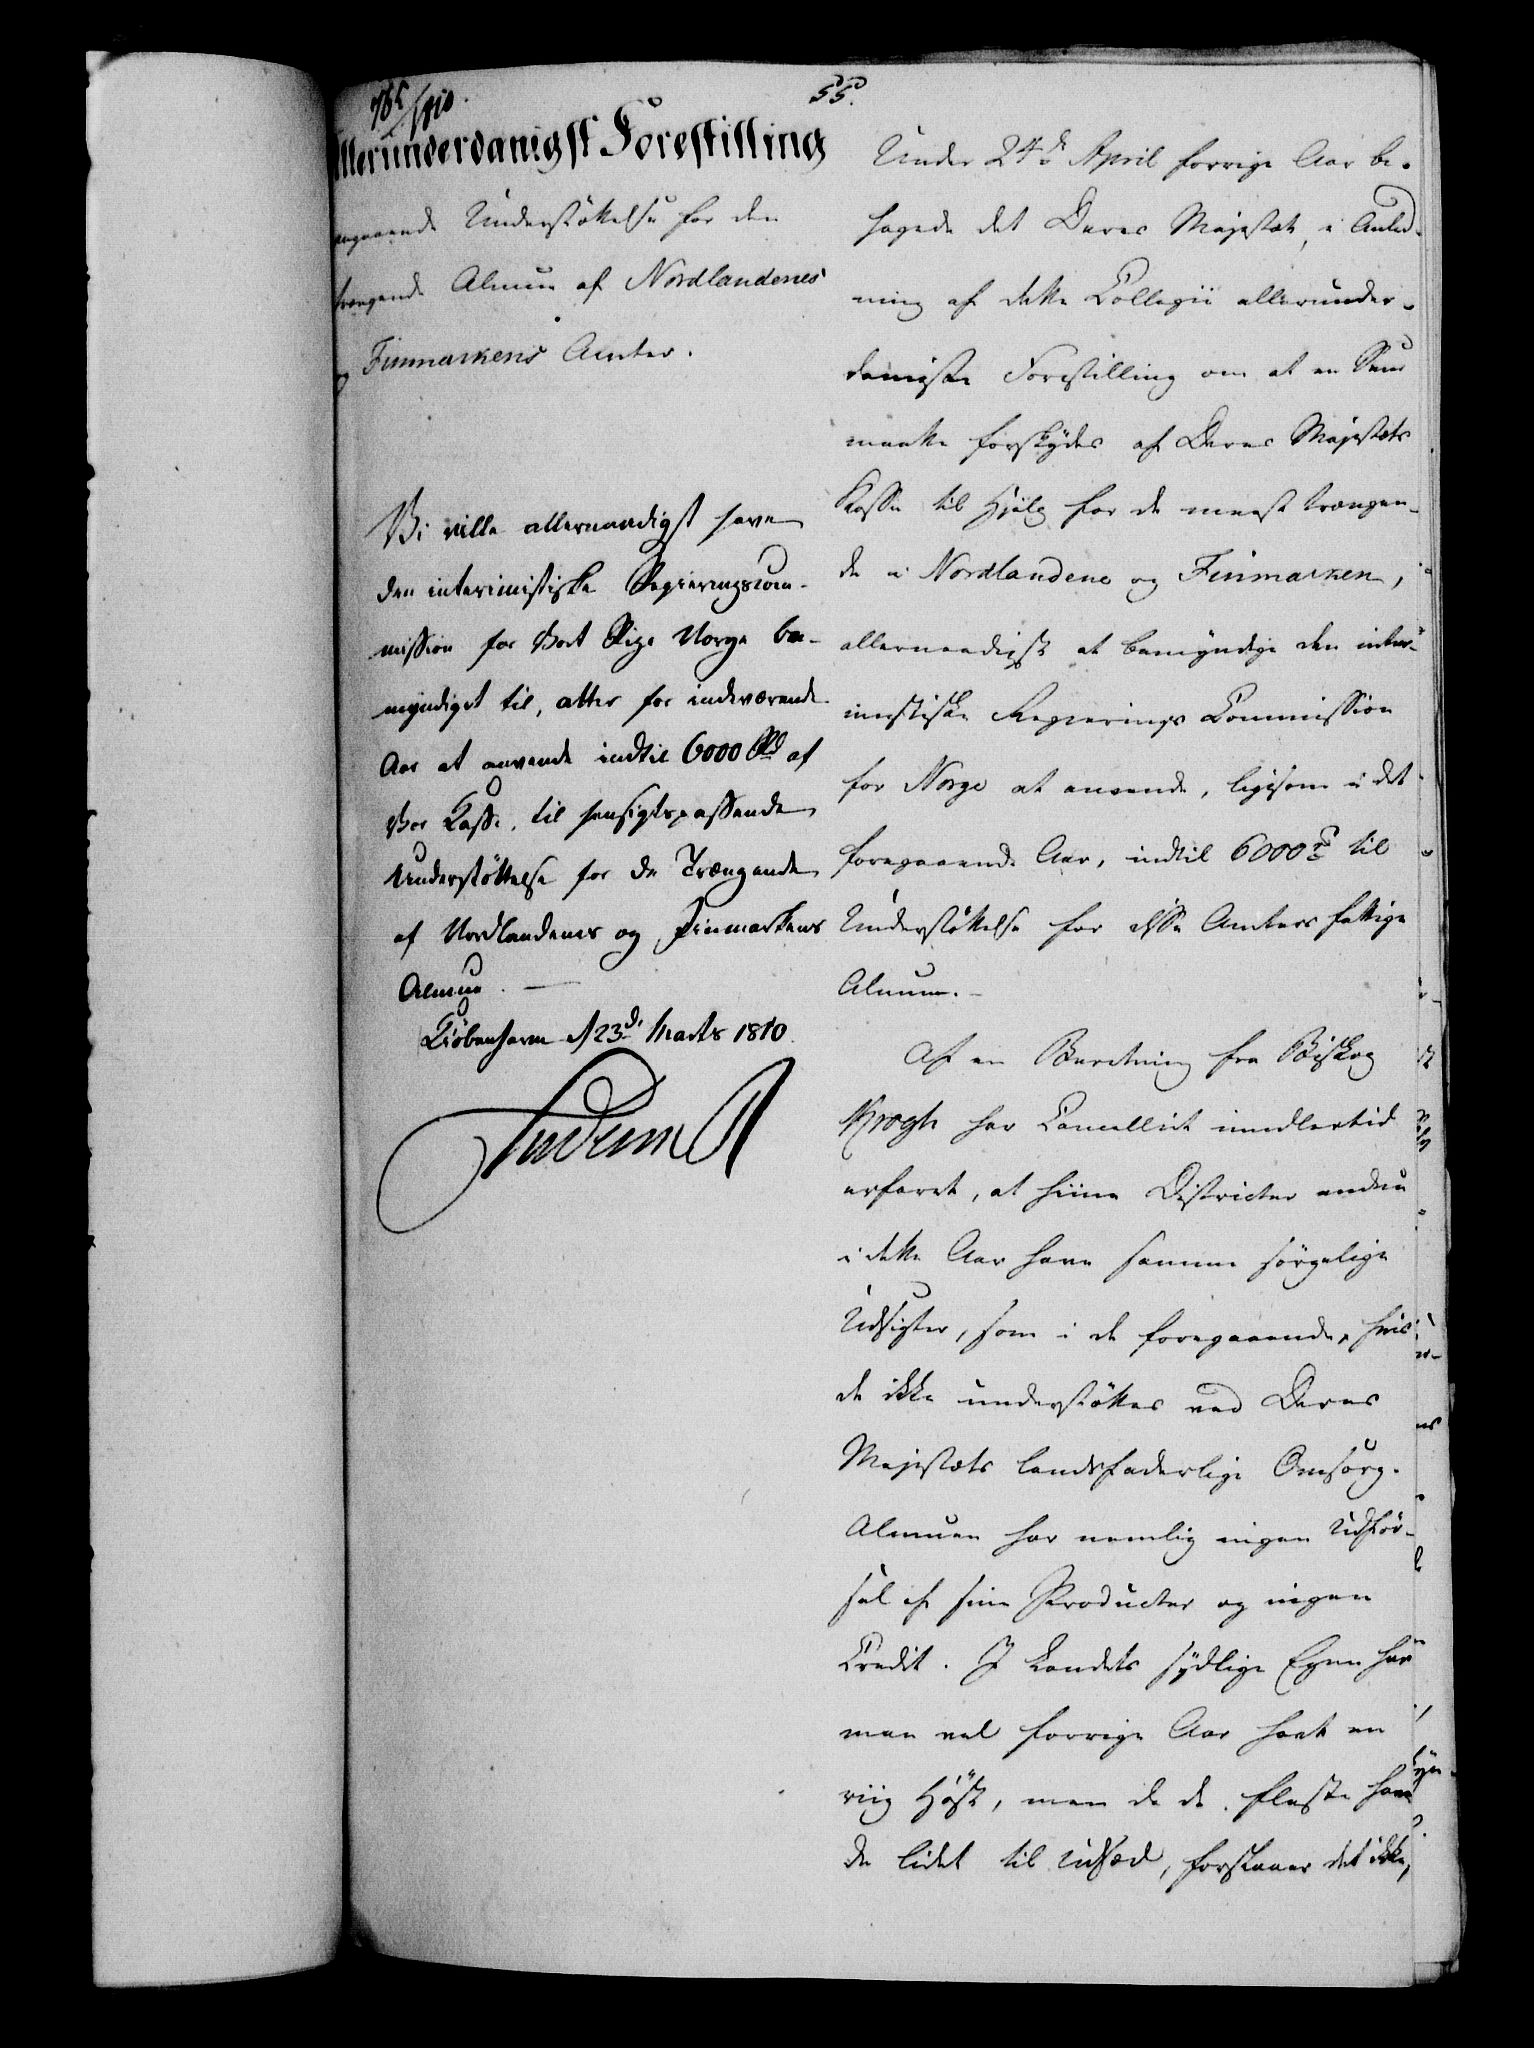 785/1810.
55.
Allerunderdanigst Forestilling
angaaende Understøttelse for den
trængende Almue af Nordlandenes
og Finmarkens Amter.
Vi ville allernaadigst have
den interimistiske Regieringscom-
mission for Vort Rige Norge be-
myndiget til, atter for indeværende
Aar at anvende indtil 6000 Rd af
Vor Kasse, til hensigtspassende
Understøttelse for de Trængende
af Nordlandenes og Finmarkens
Almue. —
Kiöbenhavn d 23d Marts 1810.
Frederik R
Under 24de April forrige Aar be-
hagede det Deres Majestæt, i Anled-
ning af dette Collegii allerunder-
danigste Forestilling om at en Sum
maatte forskydes af Deres Majestæts
Kasse til Hjelp for de meest trængen-
de i Nordlandene og Finmarken,
allernaadigst at bemyndige den inter-
imistiske Regierings Commission
for Norge at anvende, ligesom i det
foregaaende Aar, indtil 6000 rd til
Understøttelse for disse Amters fattige
Almue. -
Af en Beretning fra Biskop
Krogh har Cancelliet imidlertid
erfaret, at hiine Districter endnu
i dette Aar have samme sörgelige
Udsigter, som i de foregaaende, hvis
de ikke understöttes ved Deres
Majestæts landsfaderlige Omsorg.
Almuen har nemlig ingen Udför-
sel af sine Producter og ingen
Credit. I Landets sydlige Egne har
man vel forrige Aar havt en
riig Höst, men da de fleste havde
de lidet til Udsæd, forslaaer det ikke,